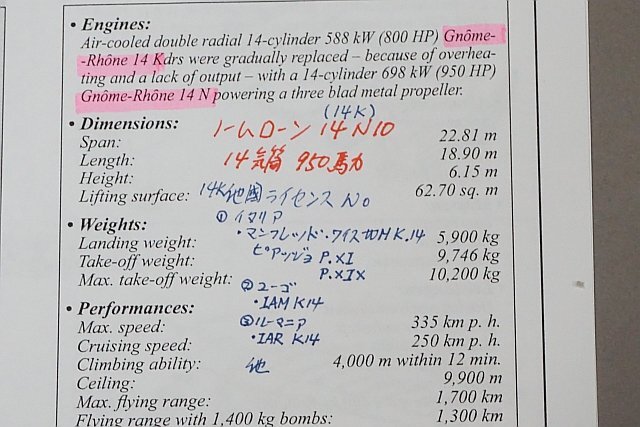 • Engines:
Air-cooled double radial 14-cylinder 588 kW (800 HP) Gnôme-
-Rhône 14 Kdrs were gradually replaced – because of overhea-
ting and a lack of output – with a 14-cylinder 698 kW (950 HP)
Gnôme-Rhône 14 N powering a three blad metal propeller.
(14K)
• Dimensions:
ノームローン 14 N10
Span: 22.81 m
Length: 18.90 m
14気筒 950馬力
Height: 6.15 m
Lifting surface: 62.70 sq. m
14K他國ライセンス No
• Weights:
① イタリア
Landing weight: 5,900 kg
・マンフレッド・ワイス WM K.14
Take-off weight: 9,746 kg
ピアッジョ P.XI
Max. take-off weight: 10,200 kg
P.XIX
② ユーゴ
・IAM K14
• Performances:
③ ルーマニア
Max. speed: 335 km p. h.
・IAR K14
Cruising speed: 250 km p. h.
Climbing ability: 4,000 m within 12 min.
他
Ceiling: 9,900 m
Max. flying range: 1,700 km
Flying range with 1,400 kg bombs: 1,300 km